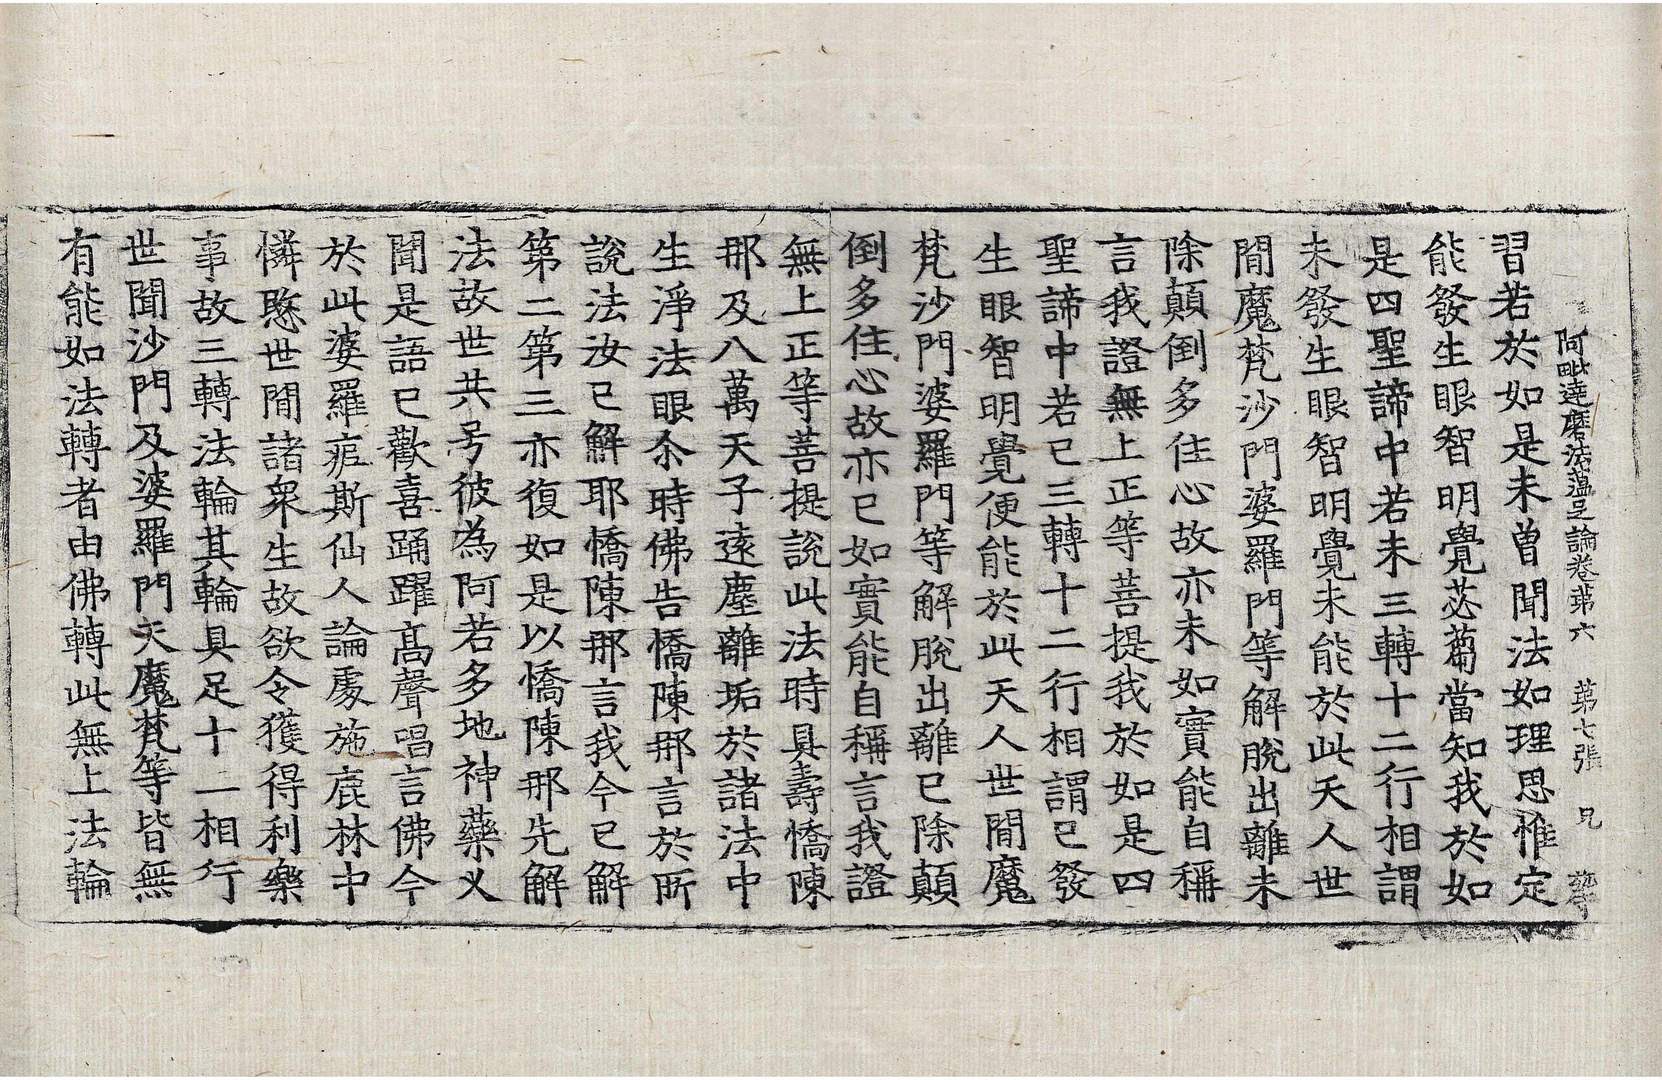 阿毗達磨法蘊足論卷第六 第七張 兄
習若於如是未曾聞法如理思惟定
能發生眼智明覺苾蒭當知我於如
是四聖諦中若未三轉十二行相謂
未發生眼智明覺未能於此天人世
間魔梵沙門婆羅門等解脫出離未
除顛倒多住心故亦未如實能自稱
言我證無上正等菩提我於如是四
聖諦中若已三轉十二行相謂已發
生眼智明覺便能於此天人世間魔
梵沙門婆羅門等解脫出離已除顛
倒多住心故亦已如實能自稱言我證
無上正等菩提說此法時具壽憍陳
那及八萬天子遠塵離垢於諸法中
生淨法眼尒時佛告憍陳那言於所
說法汝已解耶憍陳那言我今已解
第二第三亦復如是以憍陳那先解
法故世共号彼為阿若多地神藥叉
聞是語已歡喜踊躍高聲唱言佛今
於此婆羅痆斯仙人論處施鹿林中
憐愍世間諸衆生故欲令獲得利樂
事故三轉法輪其輪具足十二相行
世間沙門及婆羅門天魔梵等皆無
有能如法轉者由佛轉此無上法輪